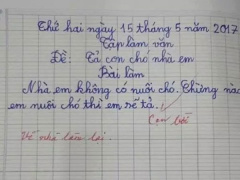 Thứ hai ngày 15 tháng 5 năm 2017
Tập làm văn
Đề: Tả con chó nhà em
Bài làm
Nhà em không có nuôi chó. Chừng nào
em nuôi chó thì em sẽ tả.
Con lười
Về nhà làm lại.